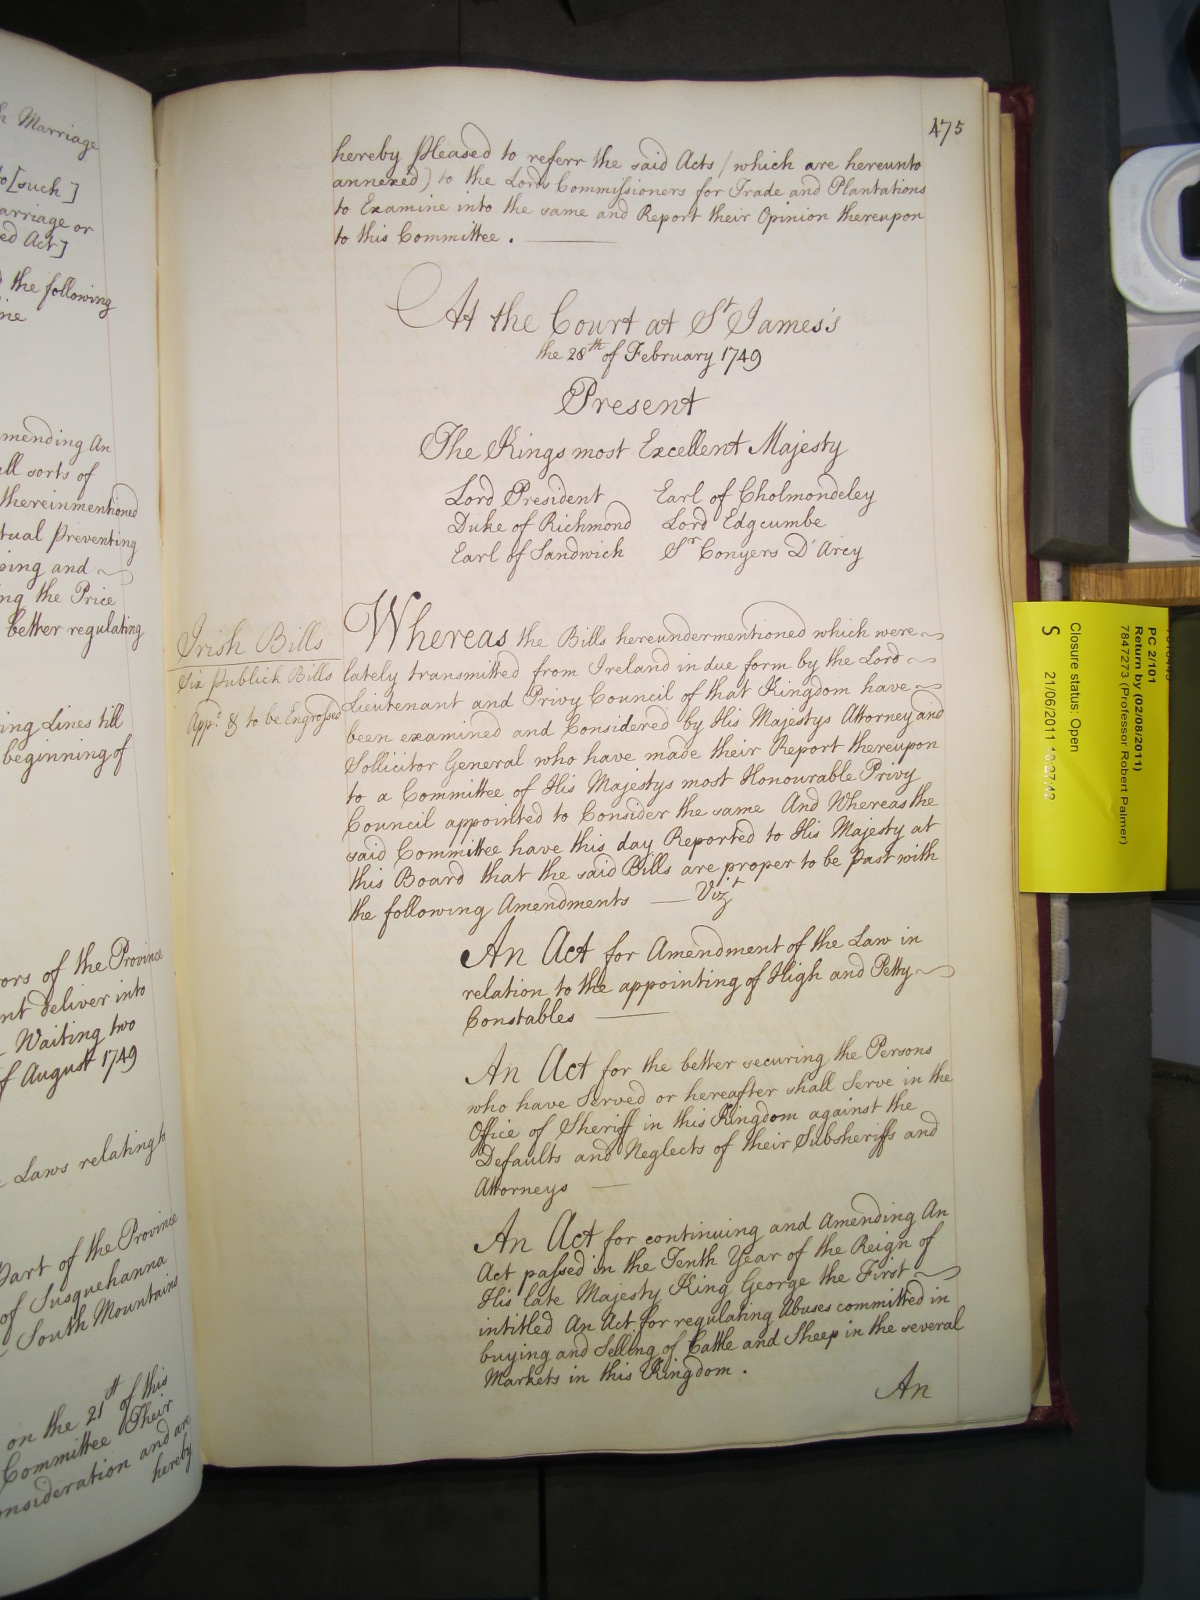 h Marriage
to [such]
arriage or
ed Act]
d the following
ine
mending An
ll sorts of
thereinmentioned
tual Preventing
sing and
ng the Price
better regulating
ing Lines till
beginning of
ors of the Province
nt deliver into
Waiting two
f August 1749
Laws relating to
Part of the Province
of Susquehanna
South Mountains
on the 21st of this
Committee Their
onsideration and are
hereby
475
hereby pleased to referr the said Acts / which are hereunto
annexed) to the Lords Commissioners for Trade and Plantations
to Examine into the same and Report their Opinion thereupon
to this Committee.
At the Court at St James's
the 28th of February 1749
Present
The Kings most Excellent Majesty
Lord President Earl of Cholmondeley
Duke of Richmond Lord Edgcumbe
Earl of Sandwich Sr Conyers D'Arcy
Irish Bills
Six Publick Bills
Appd. & to be Engrossed
Whereas the Bills hereundermentioned which were
lately transmitted from Ireland in due form by the Lord
Lieutenant and Privy Council of that Kingdom have
been examined and Considered by His Majestys Attorney and
Sollicitor General who have made their Report thereupon
to a Committee of His Majestys most Honourable Privy
Council appointed to Consider the same And Whereas the
said Committee have this day Reported to His Majesty at
this Board that the said Bills are proper to be past with
the following Amendments — Vizt
An Act for Amendment of the Law in
relation to the appointing of High and Petty
Constables
An Act for the better securing the Persons
who have Served or hereafter shall Serve in the
Office of Sheriff in this Kingdom against the
Defaults and Neglects of their Subsheriffs and
Attorneys
An Act for continuing and Amending An
Act passed in the Tenth Year of the Reign of
His late Majesty King George the First
intitled An Act for regulating Abuses committed in
buying and Selling of Cattle and Sheep in the several
Markets in this Kingdom.
An
PC 2/101
Return by (02/08/2011)
7847273 (Professor Robert Palmer)
Closure status: Open
S 21/06/2011 16:27:42